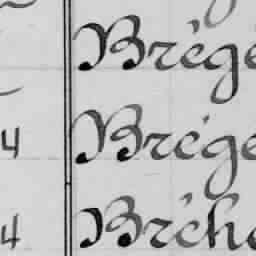 Brégé
4 Brége
4 Bréhe